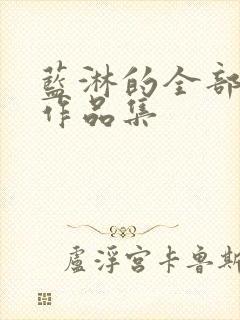 藍淋的全部
作品集
盧浮宮卡魯斯